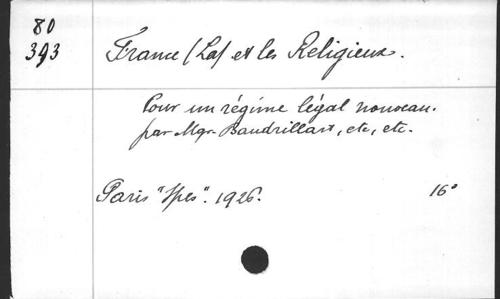 80
393
France (La) et les Religieux.
Pour un régime légal nouveau.
par Mgr. Baudrillart, etc, etc.
Paris "Spes". 1926. 16°